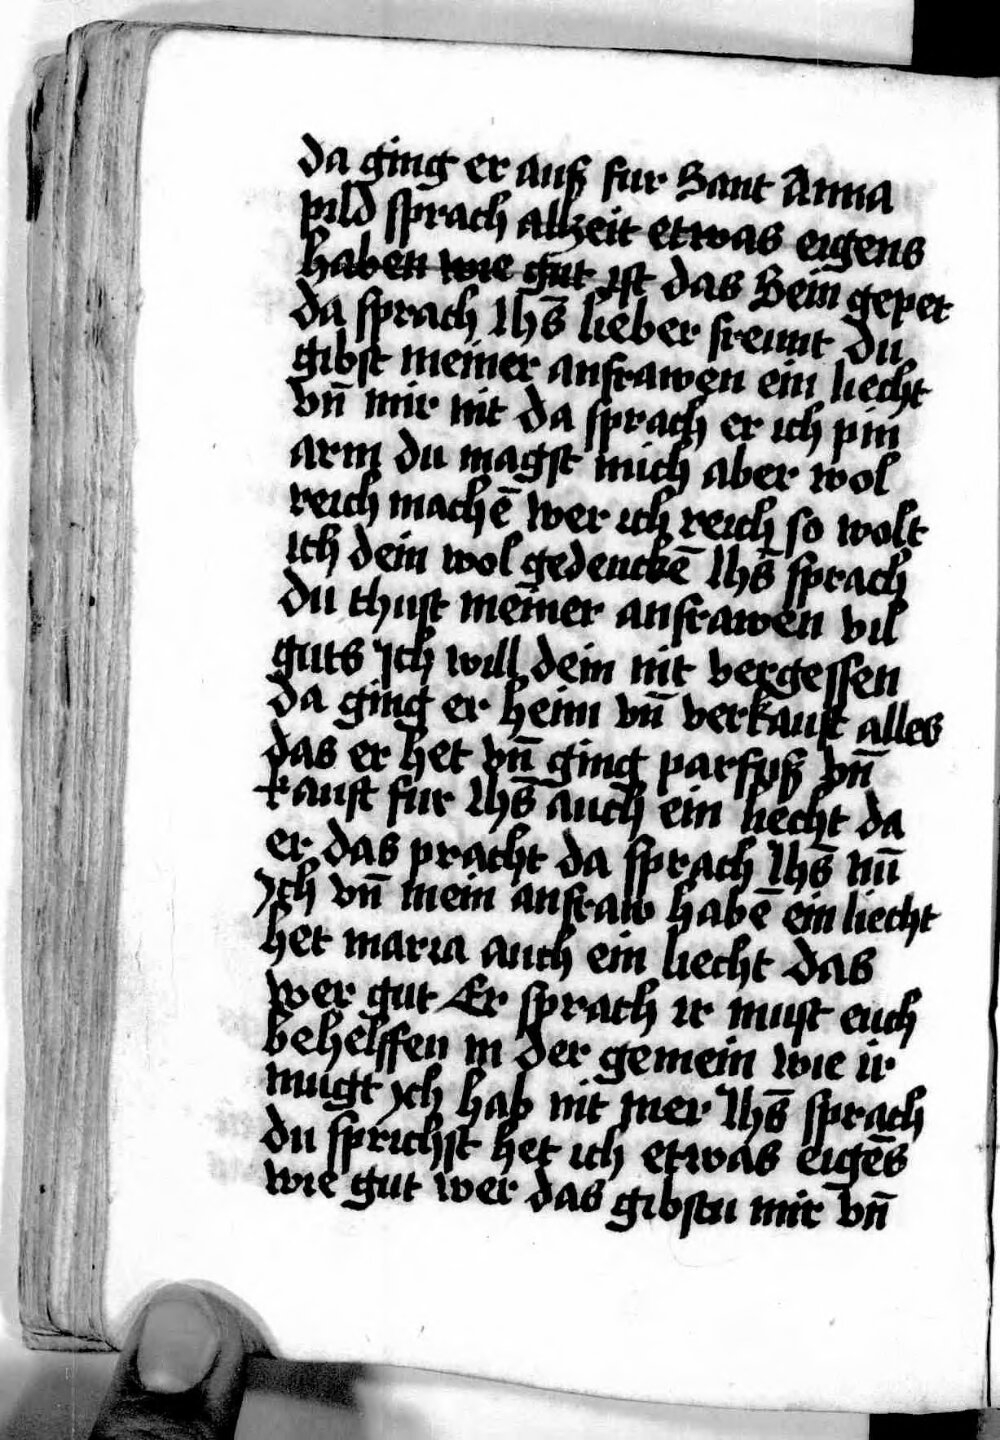 da ging er auß fur Sant Anna
pild sprach alzeit etwas eigens
haben wie gut ist das Sein gepet
da sprach Ihs̄ lieber freunt du
gibst meiner anfrawen ein liecht
vn̄ mir nit da sprach er ich pin
arm du magst mich aber wol
reich machē wer ich reich so wolt
ich dein wol gedenckē Ihs̄ sprach
du thust meiner anfrawen vil
guts Ich will dein nit vergessen
da ging er heim vn̄ verkauft alles
das er het vn̄ ging parfuß vn̄
kauft fur Ihs̄ auch ein liecht da
er das pracht da sprach Ihs̄ nū
Ich vn̄ mein anfraw habē ein liecht
het maria auch ein liecht das
wer gut Er sprach ir must euch
behelffen in der gemein wie ir
mugt ich hab nit mer Ihs̄ sprach
du sprichst het ich etwas eigēs
wie gut wer das gibstu mir vn̄